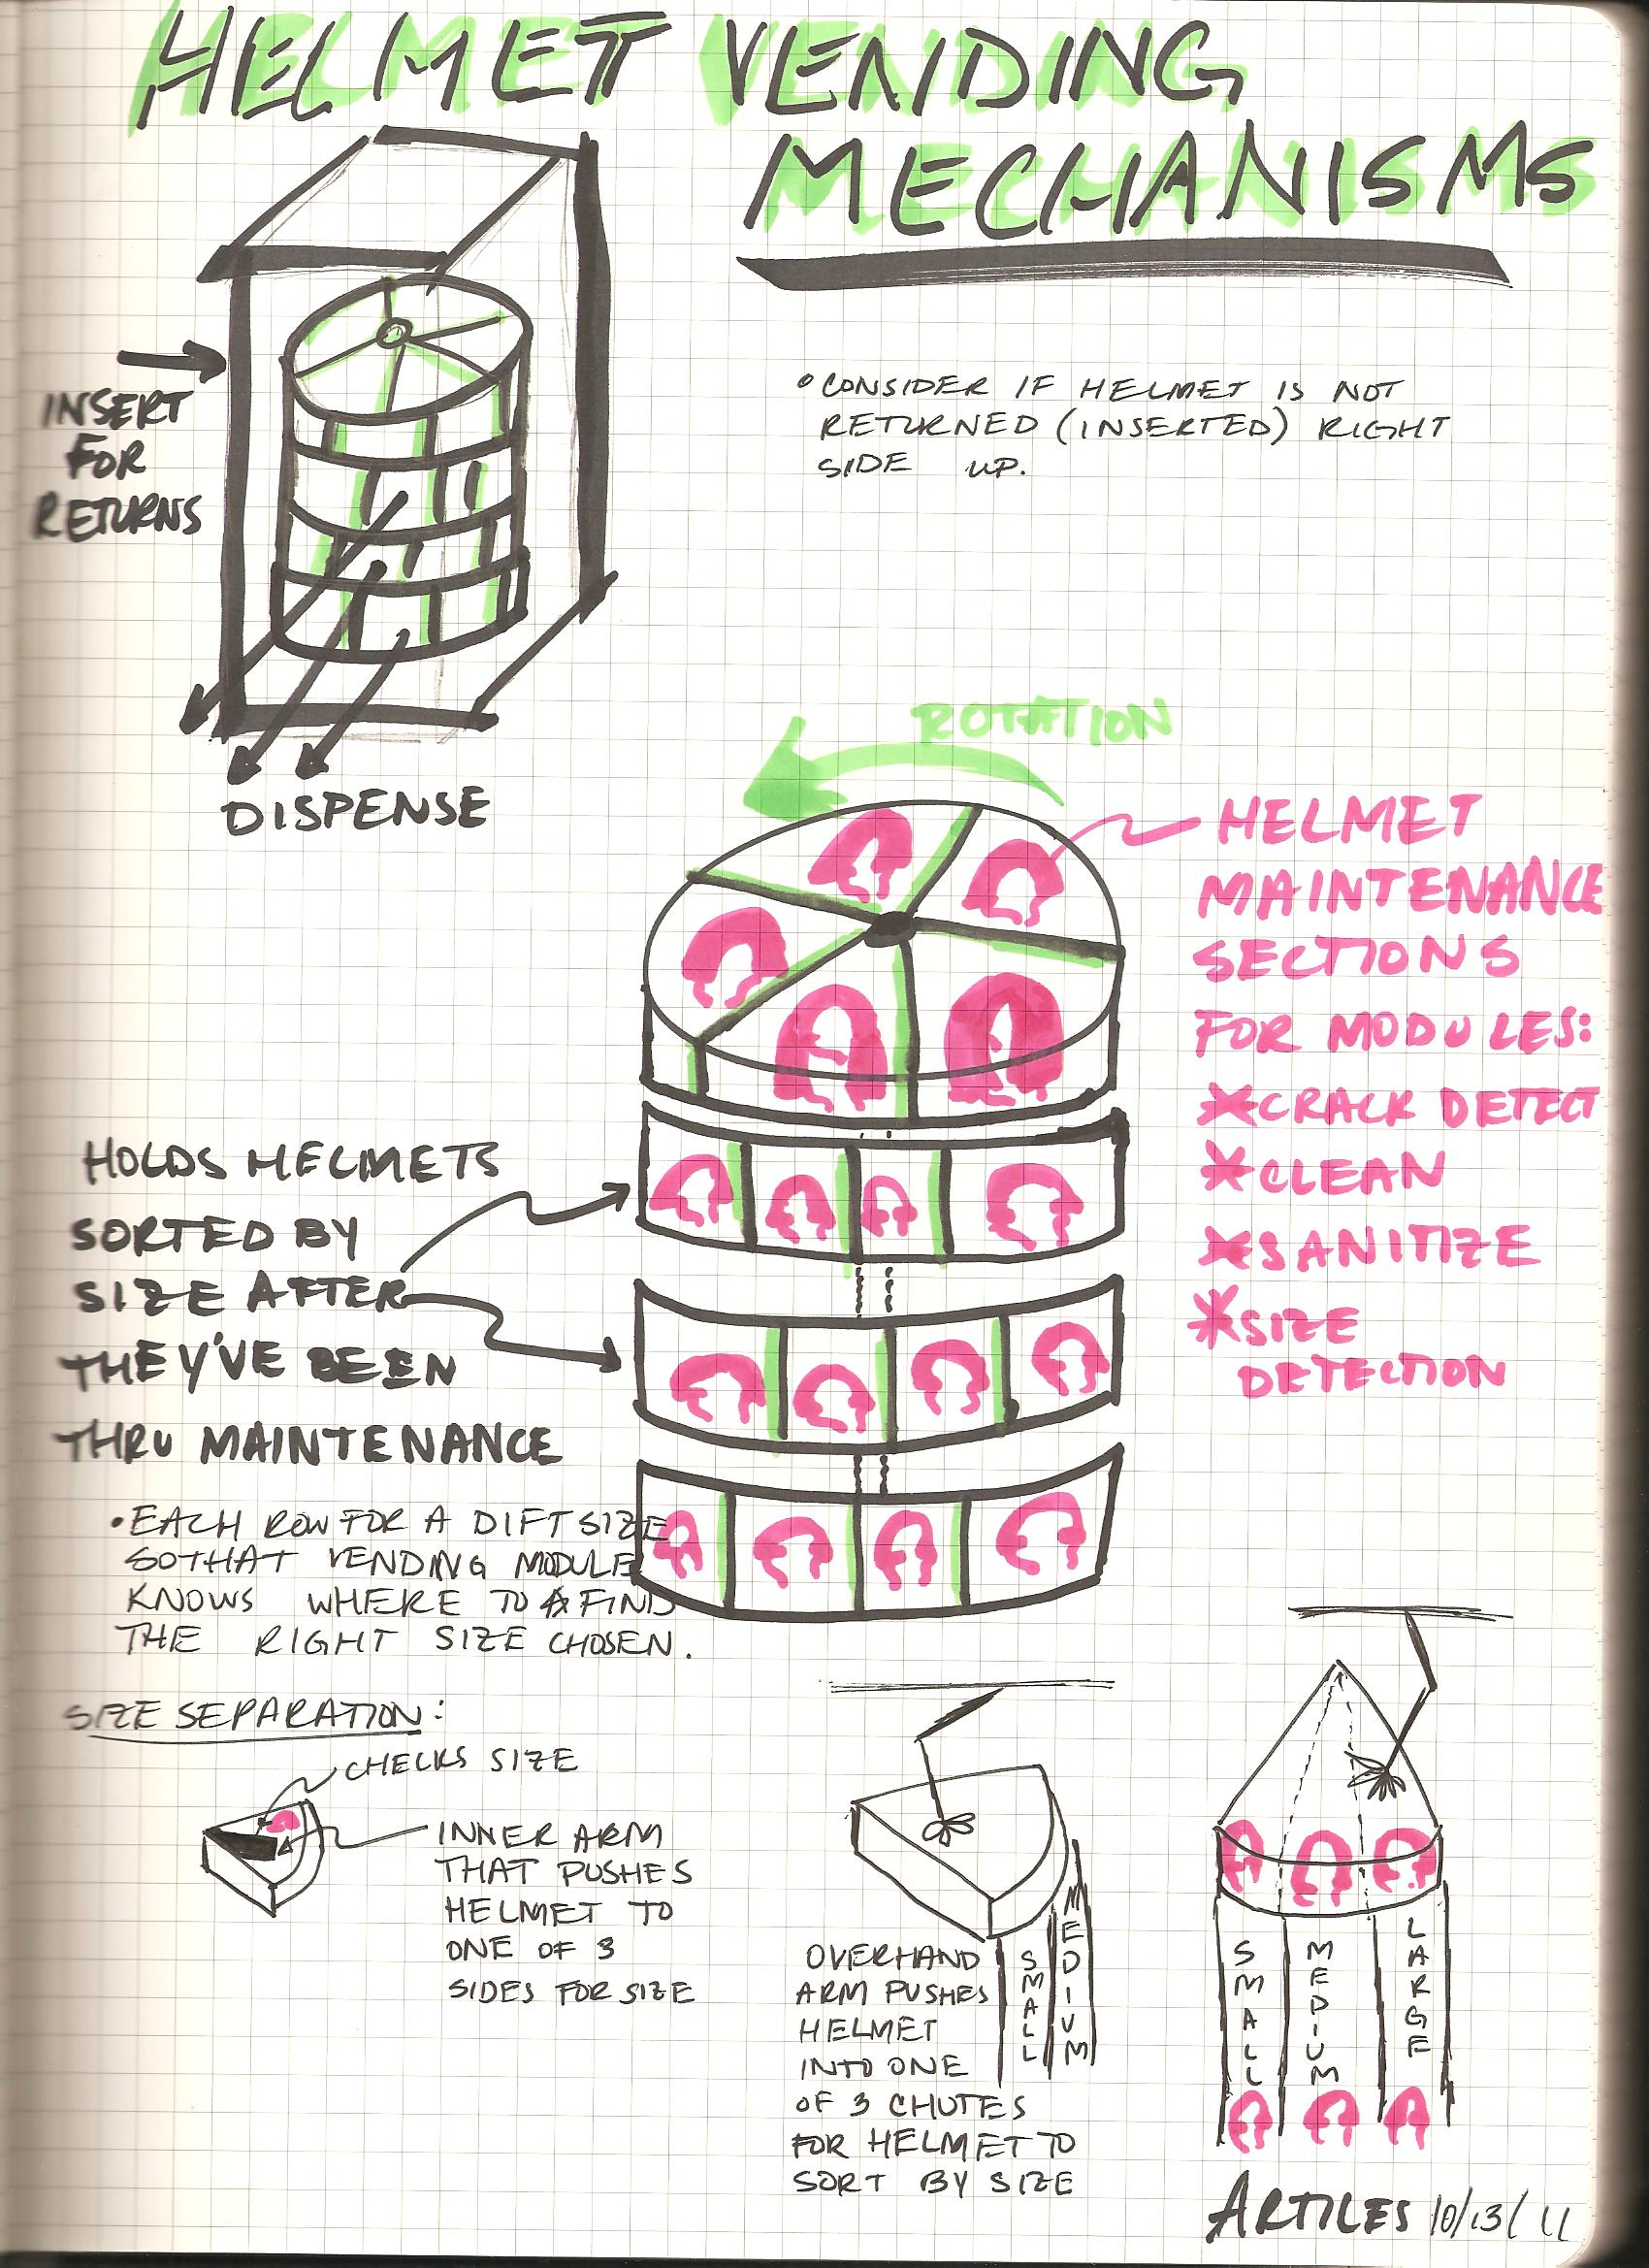 HELMET VENDING
MECHANISMS
INSERT
FOR
RETURNS
DISPENSE
° CONSIDER IF HELMET IS NOT
RETURNED (INSERTED) RIGHT
SIDE UP.
ROTATION
HELMET
MAINTENANCE
SECTIONS
FOR MODULES:
*CRACK DETECT
*CLEAN
*SANITIZE
*SIZE
DETECTION
HOLDS HELMETS
SORTED BY
SIZE AFTER
THEY'VE BEEN
THRU MAINTENANCE
• EACH ROW FOR A DIFT SIZE
SO THAT VENDING MODULE
KNOWS WHERE TO FIND
THE RIGHT SIZE CHOSEN.
SIZE SEPARATION:
CHECKS SIZE
INNER ARM
THAT PUSHES
HELMET TO
ONE OF 3
SIDES FOR SIZE
OVERHAND
ARM PUSHES
HELMET
INTO ONE
OF 3 CHUTES
FOR HELMET TO
SORT BY SIZE
SMALL
MEDIUM
SMALL
MEDIUM
LARGE
ARTILES 10/13/11